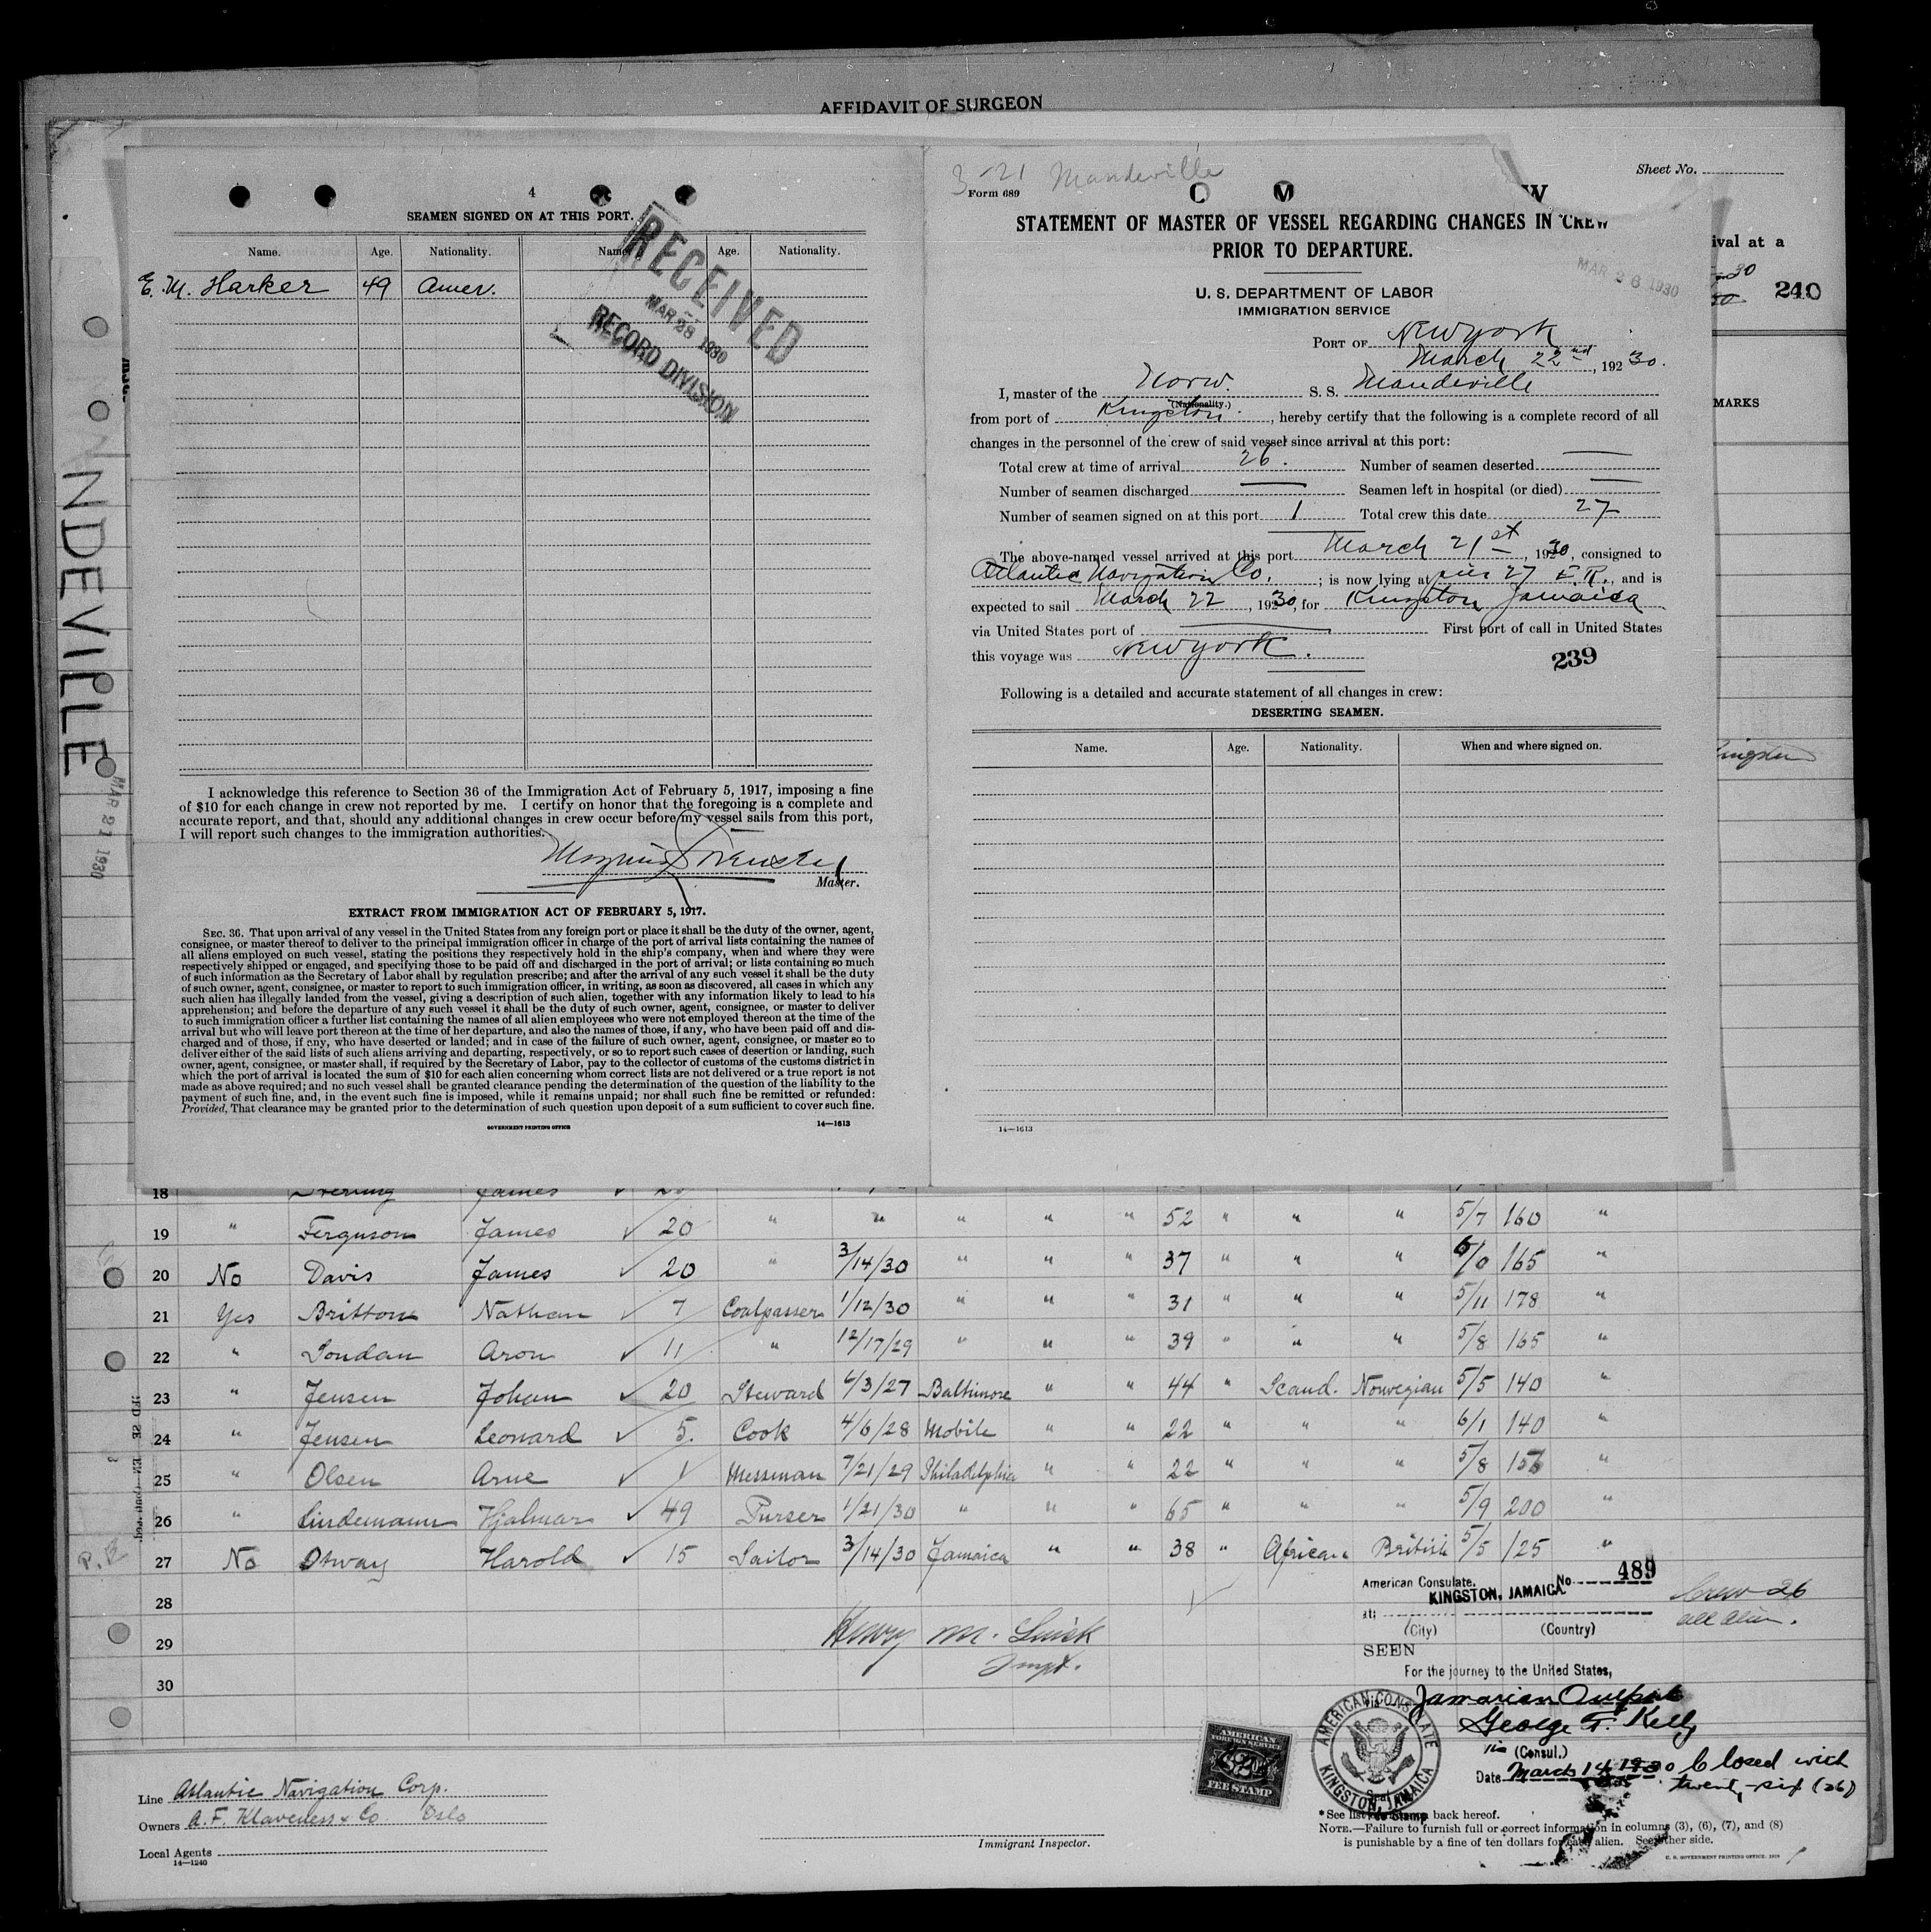 AFFIDAVIT OF SURGEON
4
SEAMEN SIGNED ON AT THIS PORT.
Name. Age. Nationality. Name. Age. Nationality.
E. M. Harker 49 Amer.
RECEIVED
MAR 28 1930
RECORD DIVISION
I acknowledge this reference to Section 36 of the Immigration Act of February 5, 1917, imposing a fine
of $10 for each change in crew not reported by me. I certify on honor that the foregoing is a complete and
accurate report, and that, should any additional changes in crew occur before my vessel sails from this port,
I will report such changes to the immigration authorities.
Master.
EXTRACT FROM IMMIGRATION ACT OF FEBRUARY 5, 1917.
SEC. 36. That upon arrival of any vessel in the United States from any foreign port or place it shall be the duty of the owner, agent,
consignee, or master thereof to deliver to the principal immigration officer in charge of the port of arrival lists containing the names of
all aliens employed on such vessel, stating the positions they respectively hold in the ship's company, when and where they were
respectively shipped or engaged, and specifying those to be paid off and discharged in the port of arrival; or lists containing so much
of such information as the Secretary of Labor shall by regulation prescribe; and after the arrival of any such vessel it shall be the duty
of such owner, agent, consignee, or master to report to such immigration officer, in writing, as soon as discovered, all cases in which any
such alien has illegally landed from the vessel, giving a description of such alien, together with any information likely to lead to his
apprehension; and before the departure of any such vessel it shall be the duty of such owner, agent, consignee, or master to deliver
to such immigration officer a further list containing the names of all alien employees who were not employed thereon at the time of the
arrival but who will leave port thereon at the time of her departure, and also the names of those, if any, who have been paid off and dis-
charged and of those, if any, who have deserted or landed; and in case of the failure of such owner, agent, consignee, or master so to
deliver either of the said lists of such aliens arriving and departing, respectively, or so to report such cases of desertion or landing, such
owner, agent, consignee, or master shall, if required by the Secretary of Labor, pay to the collector of customs of the customs district in
which the port of arrival is located the sum of $10 for each alien concerning whom correct lists are not delivered or a true report is not
made as above required; and no such vessel shall be granted clearance pending the determination of the question of the liability to the
payment of such fine, and, in the event such fine is imposed, while it remains unpaid; nor shall such fine be remitted or refunded:
Provided, That clearance may be granted prior to the determination of such question upon deposit of a sum sufficient to cover such fine.
GOVERNMENT PRINTING OFFICE 14—1613
3-21 Mandeville
Form 689
Sheet No.
STATEMENT OF MASTER OF VESSEL REGARDING CHANGES IN CREW
PRIOR TO DEPARTURE.
U. S. DEPARTMENT OF LABOR
IMMIGRATION SERVICE
MAR 26 1930
PORT OF New York
March 22nd, 1930.
I, master of the Norw. S. S. Mandeville
(Nationality.)
from port of Kingston, hereby certify that the following is a complete record of all
changes in the personnel of the crew of said vessel since arrival at this port:
Total crew at time of arrival 26. Number of seamen deserted —
Number of seamen discharged — Seamen left in hospital (or died) —
Number of seamen signed on at this port 1 Total crew this date 27
The above-named vessel arrived at this port March 21st, 1930, consigned to
Atlantic Navigation Co.; is now lying at pier 27 E.R., and is
expected to sail March 22, 1930, for Kingston Jamaica
via United States port of — First port of call in United States
this voyage was New York.
239
Following is a detailed and accurate statement of all changes in crew:
DESERTING SEAMEN.
Name. Age. Nationality. When and where signed on.
14—1613
ival at a
30
240
MARKS
NDEVILLE
MAR 21 1930
18 Sterling James
19 " Ferguson James 20 " " " " " 52 " " " 5/7 160 "
20 No Davis James 20 " 3/14/30 " " " 37 " " " 6/0 165 "
21 Yes Britton Nathan 7 Coalpasser 1/12/30 " " " 31 " " " 5/11 178 "
22 " Sondan Aron 11 " 12/17/29 " " " 39 " " " 5/8 165 "
23 " Jensen Johan 20 Steward 6/3/27 Baltimore " " 44 " Scand. Norwegian 5/5 140 "
24 " Jensen Leonard 5. Cook 4/6/28 Mobile " " 22 " " " 6/1 140 "
25 " Olsen Arne 1 Messman 7/21/29 Philadelphia " " 22 " " " 5/8 156 "
26 " Lindemann Hjalmar 49 Purser 1/21/30 " " " 65 " " " 5/9 200 "
27 No Otway Harold 15 Sailor 3/14/30 Jamaica " " 38 " African British 5/5 125 "
28
29
30
American Consulate. No. 489
KINGSTON, JAMAICA
at:
(City) (Country)
Crew 26
all alien.
SEEN
For the journey to the United States,
George T. Kelly
(Consul.)
Date March 14 1930 Closed with
twenty-six (26)
AMERICAN CONSULATE
KINGSTON, JAMAICA
AMERICAN
FOREIGN SERVICE
$2
FEE STAMP
Line Atlantic Navigation Corp.
Owners A. F. Klaveness & Co Oslo
Local Agents
14—1240
Immigrant Inspector.
back hereof.
NOTE.—Failure to furnish full or correct information in columns (3), (6), (7), and (8)
is punishable by a fine of ten dollars for each alien. See other side.